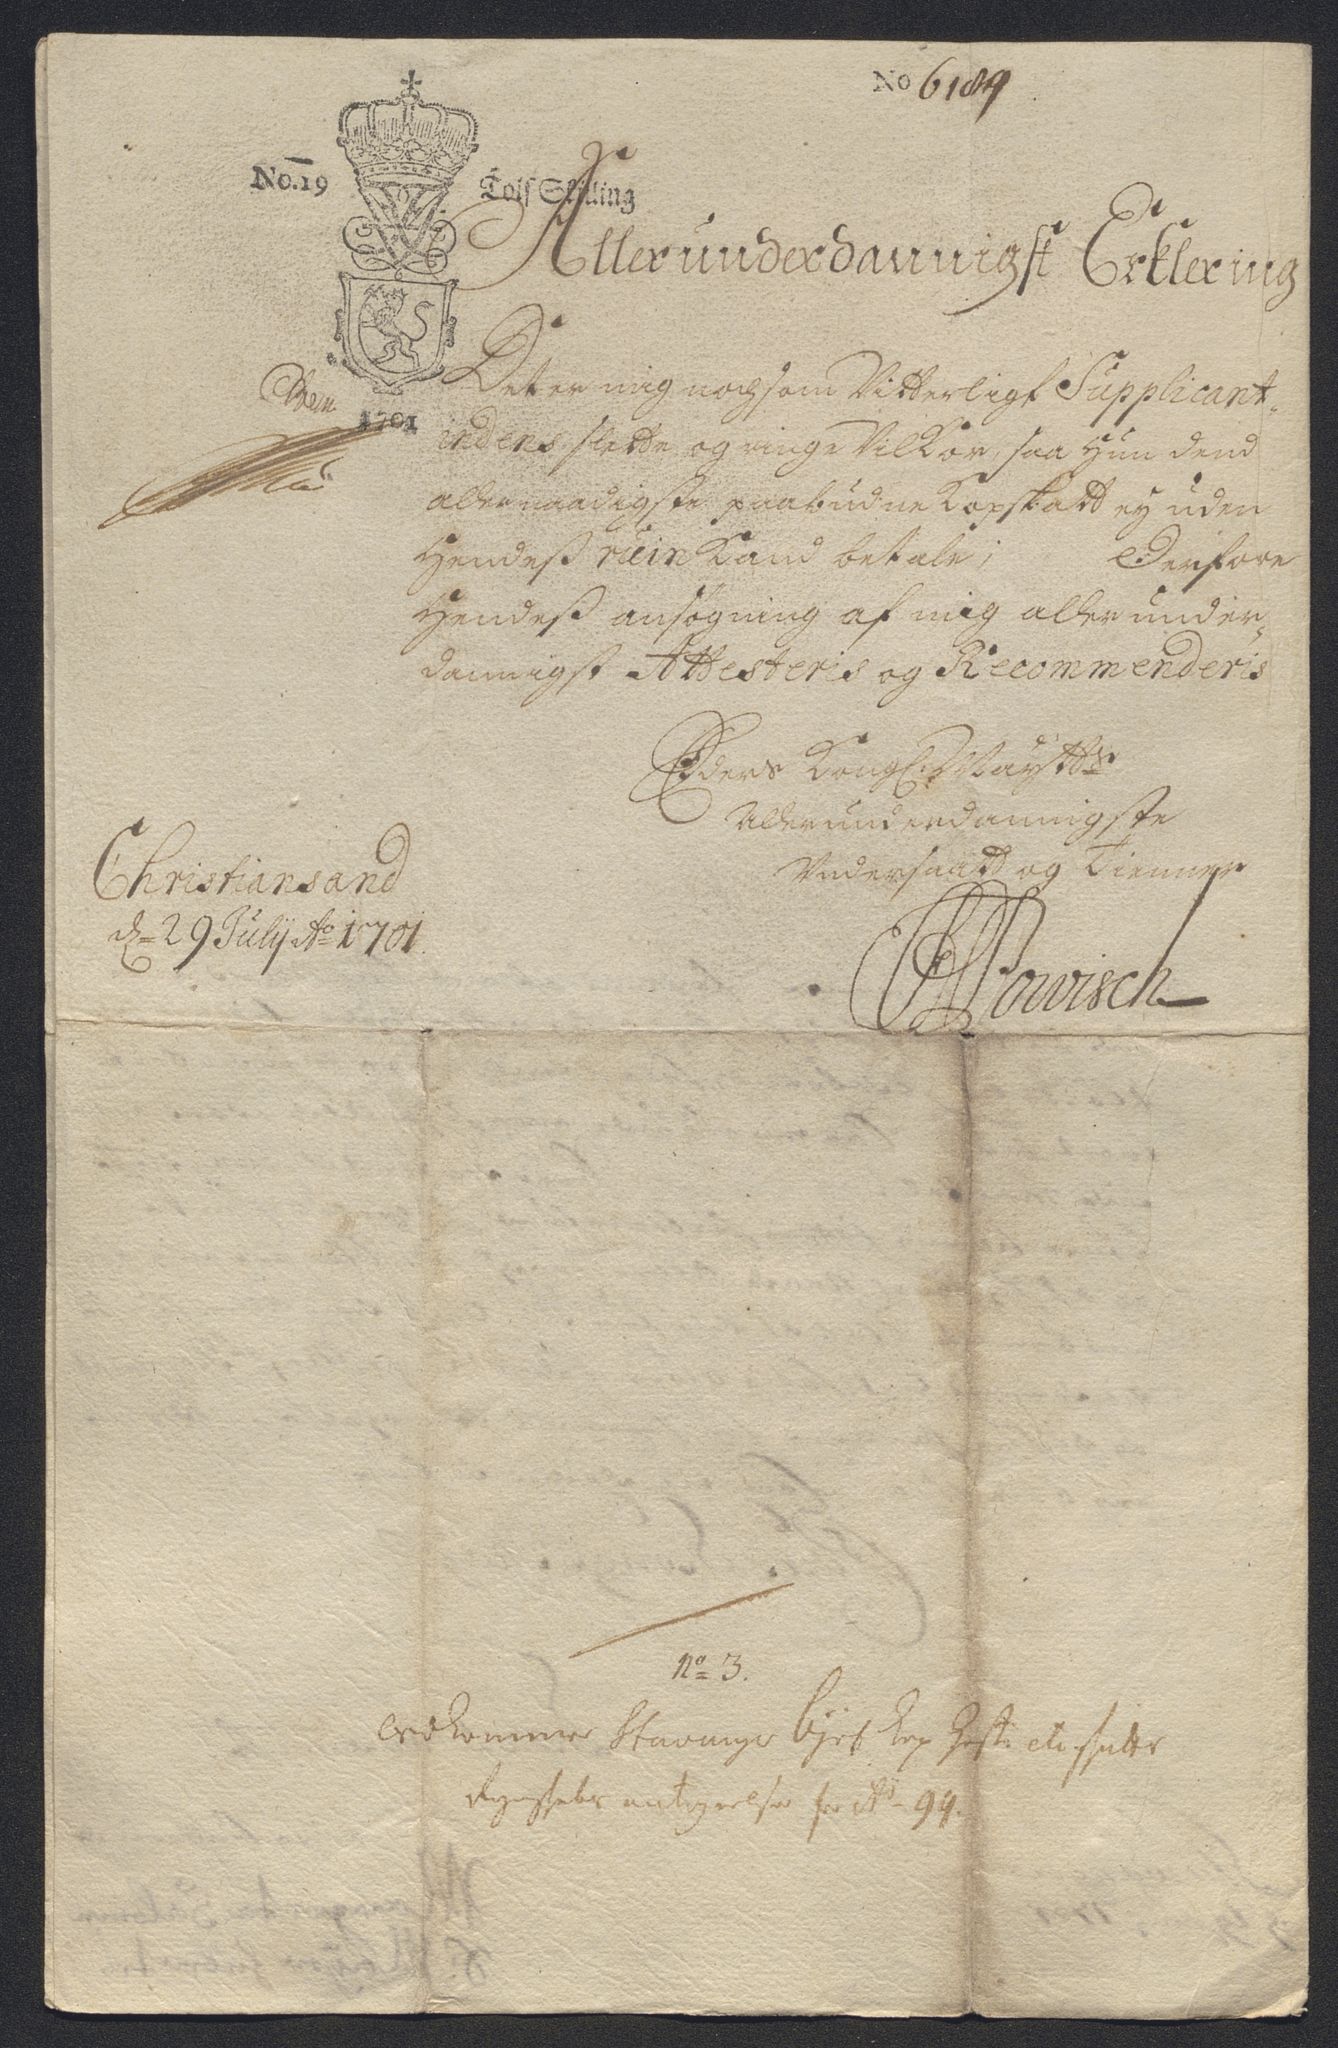 No 6189
No. 19 Tolf Skilling
Allerunderdannigst Erklering
1701
Det er mig nochsom Vitterligt Supplicant-
indens slette og ringe Vilkor, saa Hun dend
allernaadigste paabudne Kopskatt ey uden
Hendeß ruin Kand betale; Derfore
Hendeß ansøgning af mig allerunder-
dannigst Attesteris og Recommenderis
Eders Kongl. Mayttß
Allerunderdannigste
Undersaatt og Tienner
Powisch
Christiansand
d. 29 Julij Ao 1701.
No 3.
Vedkommer Stavanger Byes Kop
antegnelse for Ao 99.